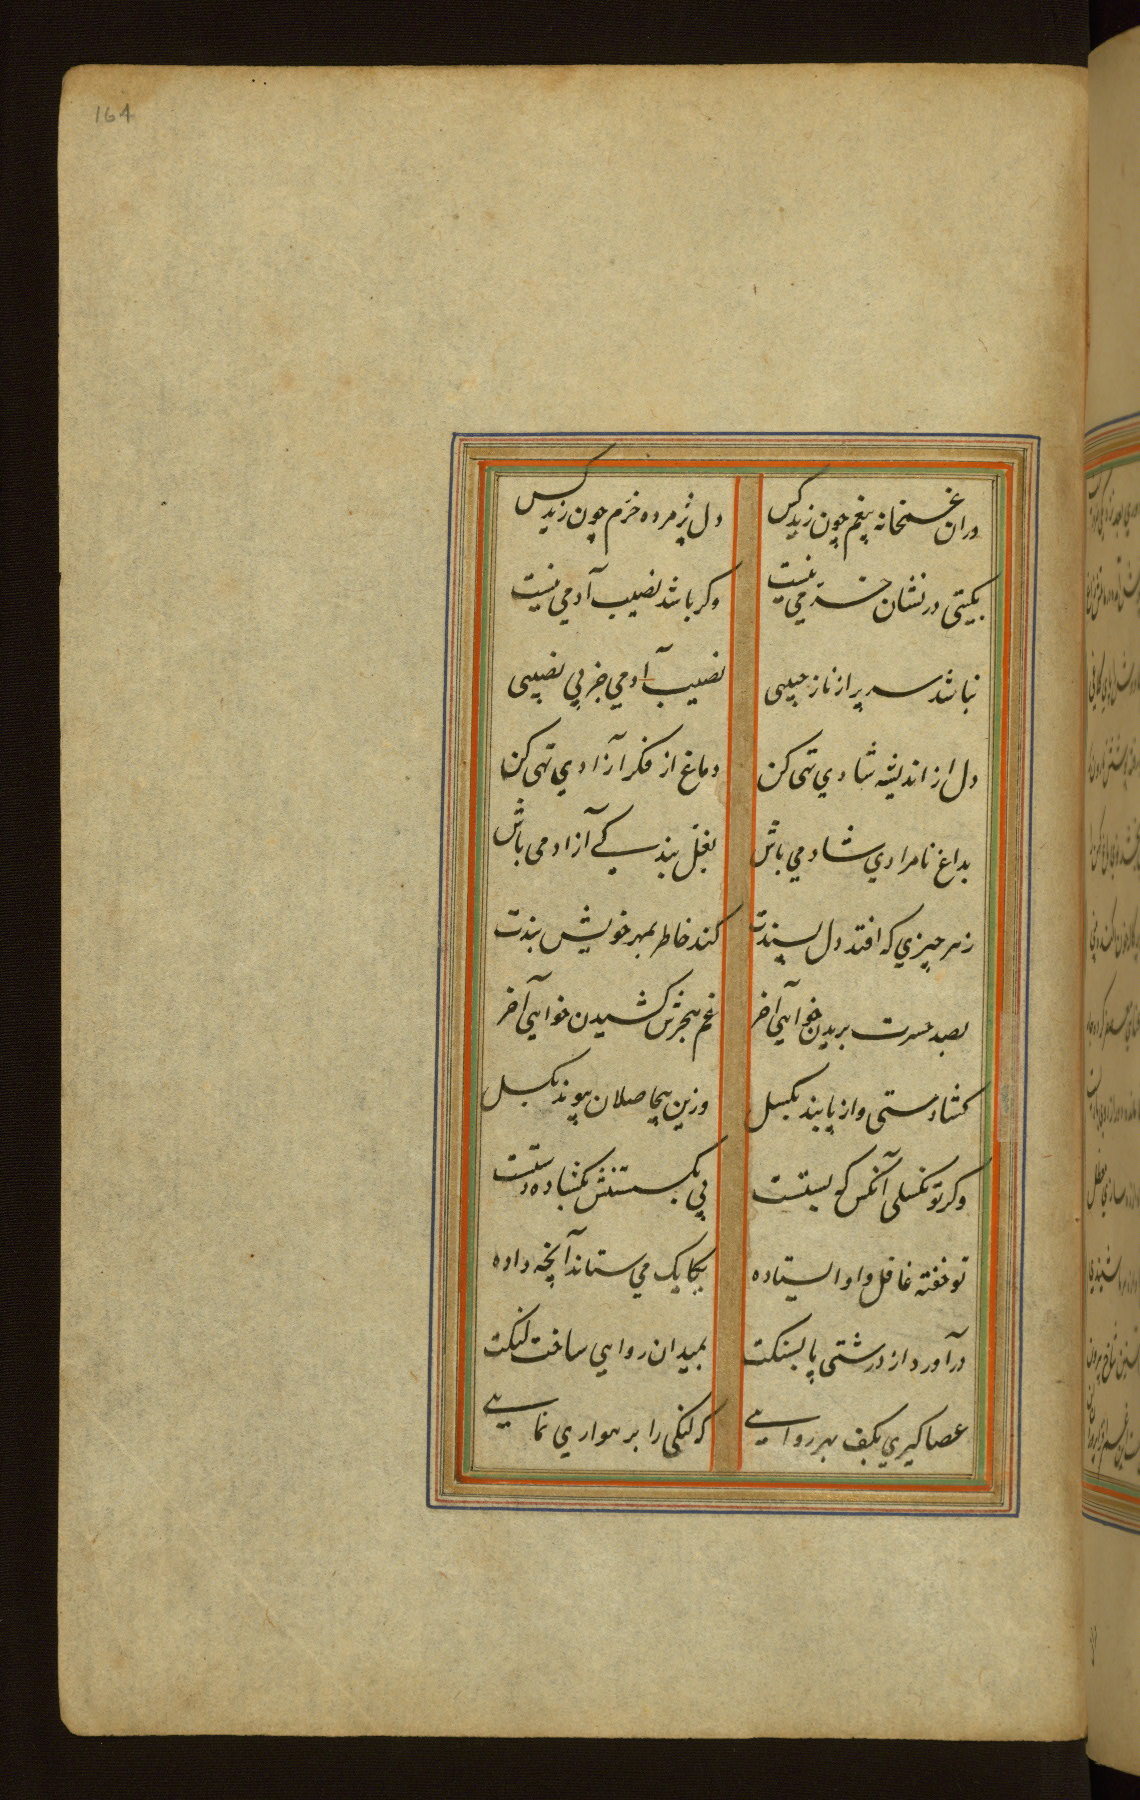 164
دران غمخانه بیغم چون زید کس
دل پژمرده خرم چون زید کس
بکیتی در نشان خرمی نیست
وکر باشد نصیب آدمی نیست
نباشد سر پر از ناز حبیبی
نصیب آدمی جز بی نصیبی
دل از اندیشه شادی تهی کن
دماغ از فکر آزادی تهی کن
بداغ نامرادی شاد می باش
بغل بندگی آزاد می باش
زهر چیزی که افتد دل پسندت
کند خاطر بمهر خویش بندت
بصد حسرت بریدن خواهی آخر
غم هجرش کشیدن خواهی آخر
کشا دستی و از پا بند بکسل
وزین بیحاصلان پیوند بکسل
وکر تو نکسلی آنکس که بستت
پی بکسستنش بکشاده دستت
تو خفته غافل و او ایستاده
یکایک می ستاند آنچه داده
درآورد از درشتی پا بسنکت
بمیدان روایی ساخت لنکت
عصا کیری بکف بهر روایی
که لنکی را برهواری نمایی